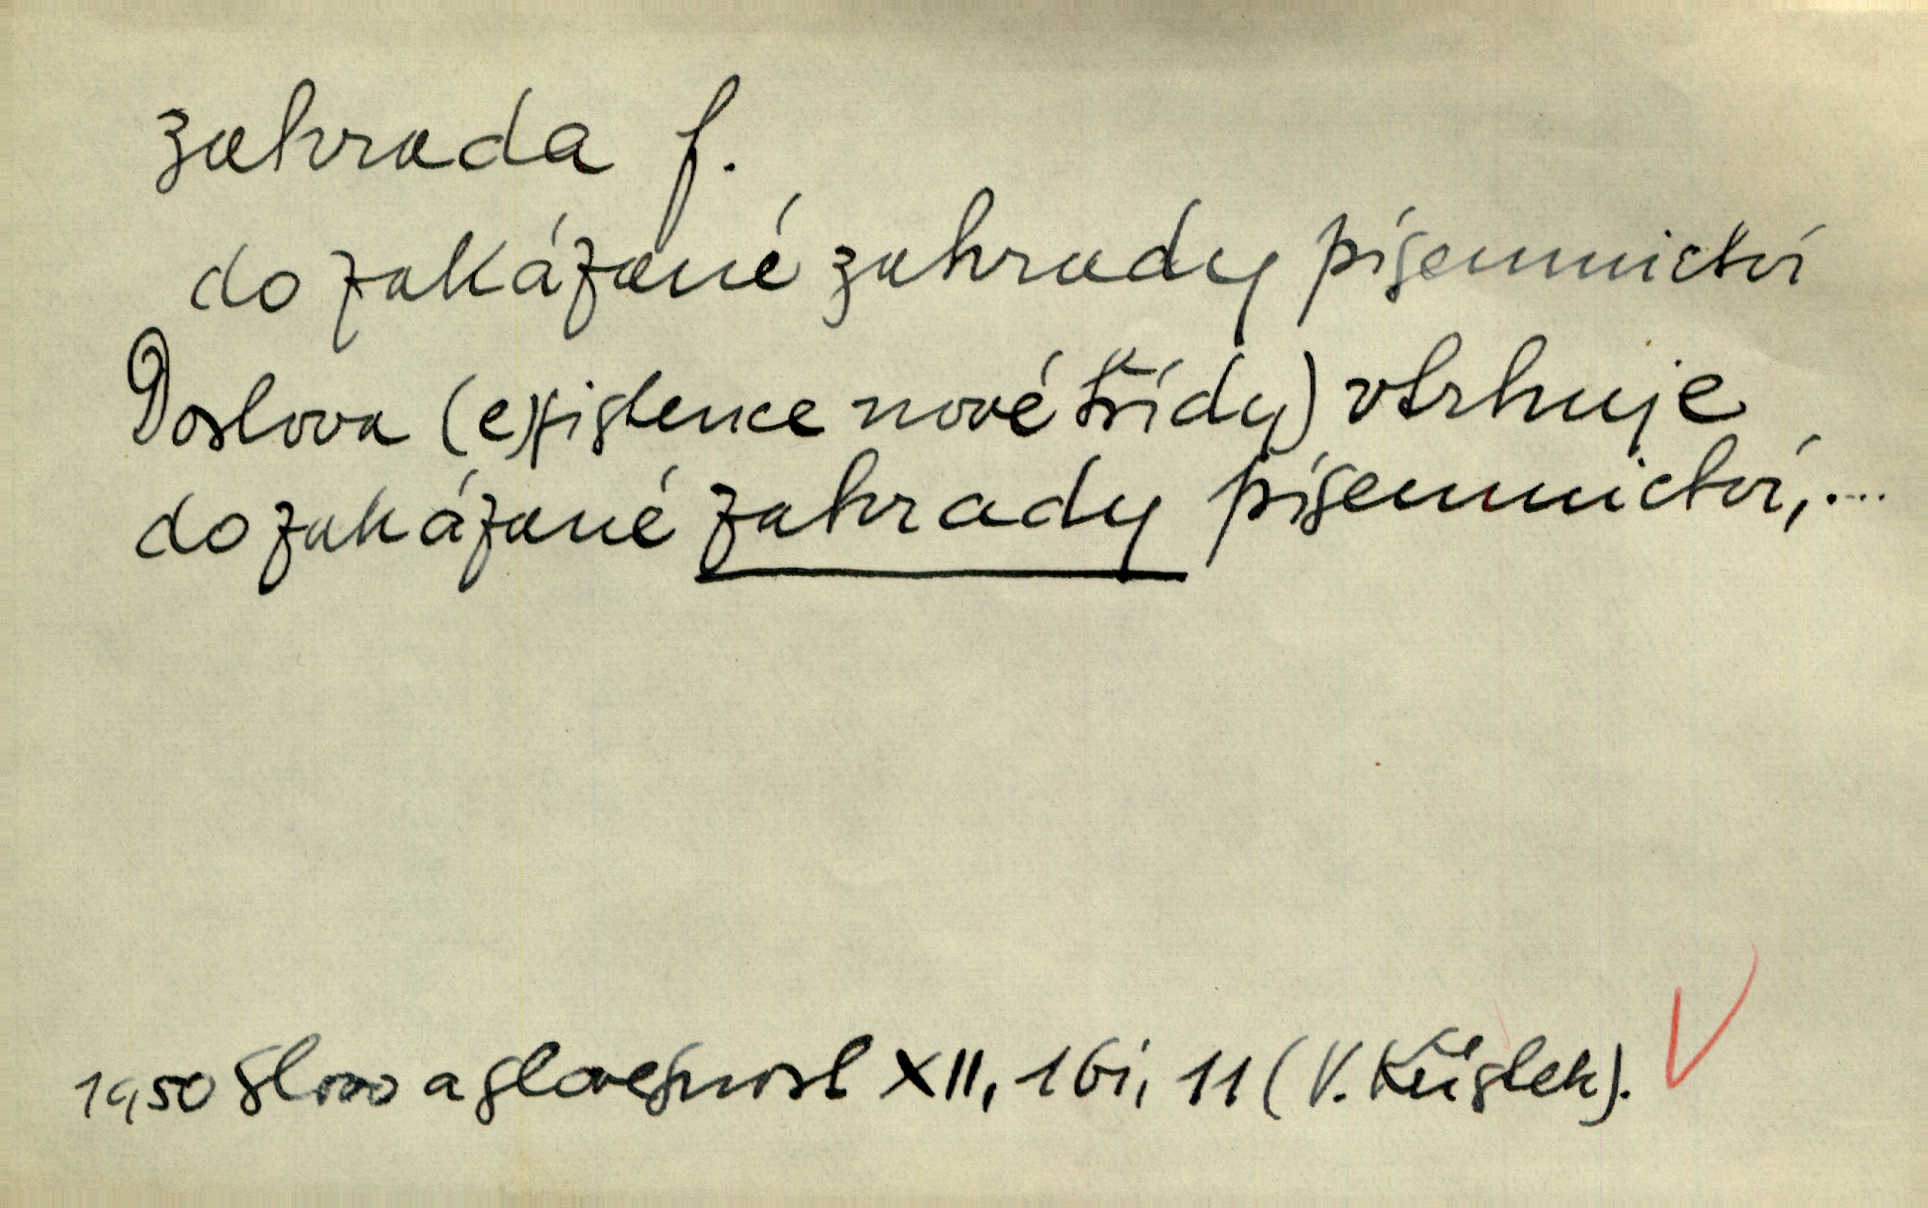 zahrada f.
do zakázané zahrady písemnictví
Doslova (existence nové třídy) vtrhuje
do zakázané zahrady písemnictví,...
1950 Slovo a slovesnost XII, 11 (V. Křístek).